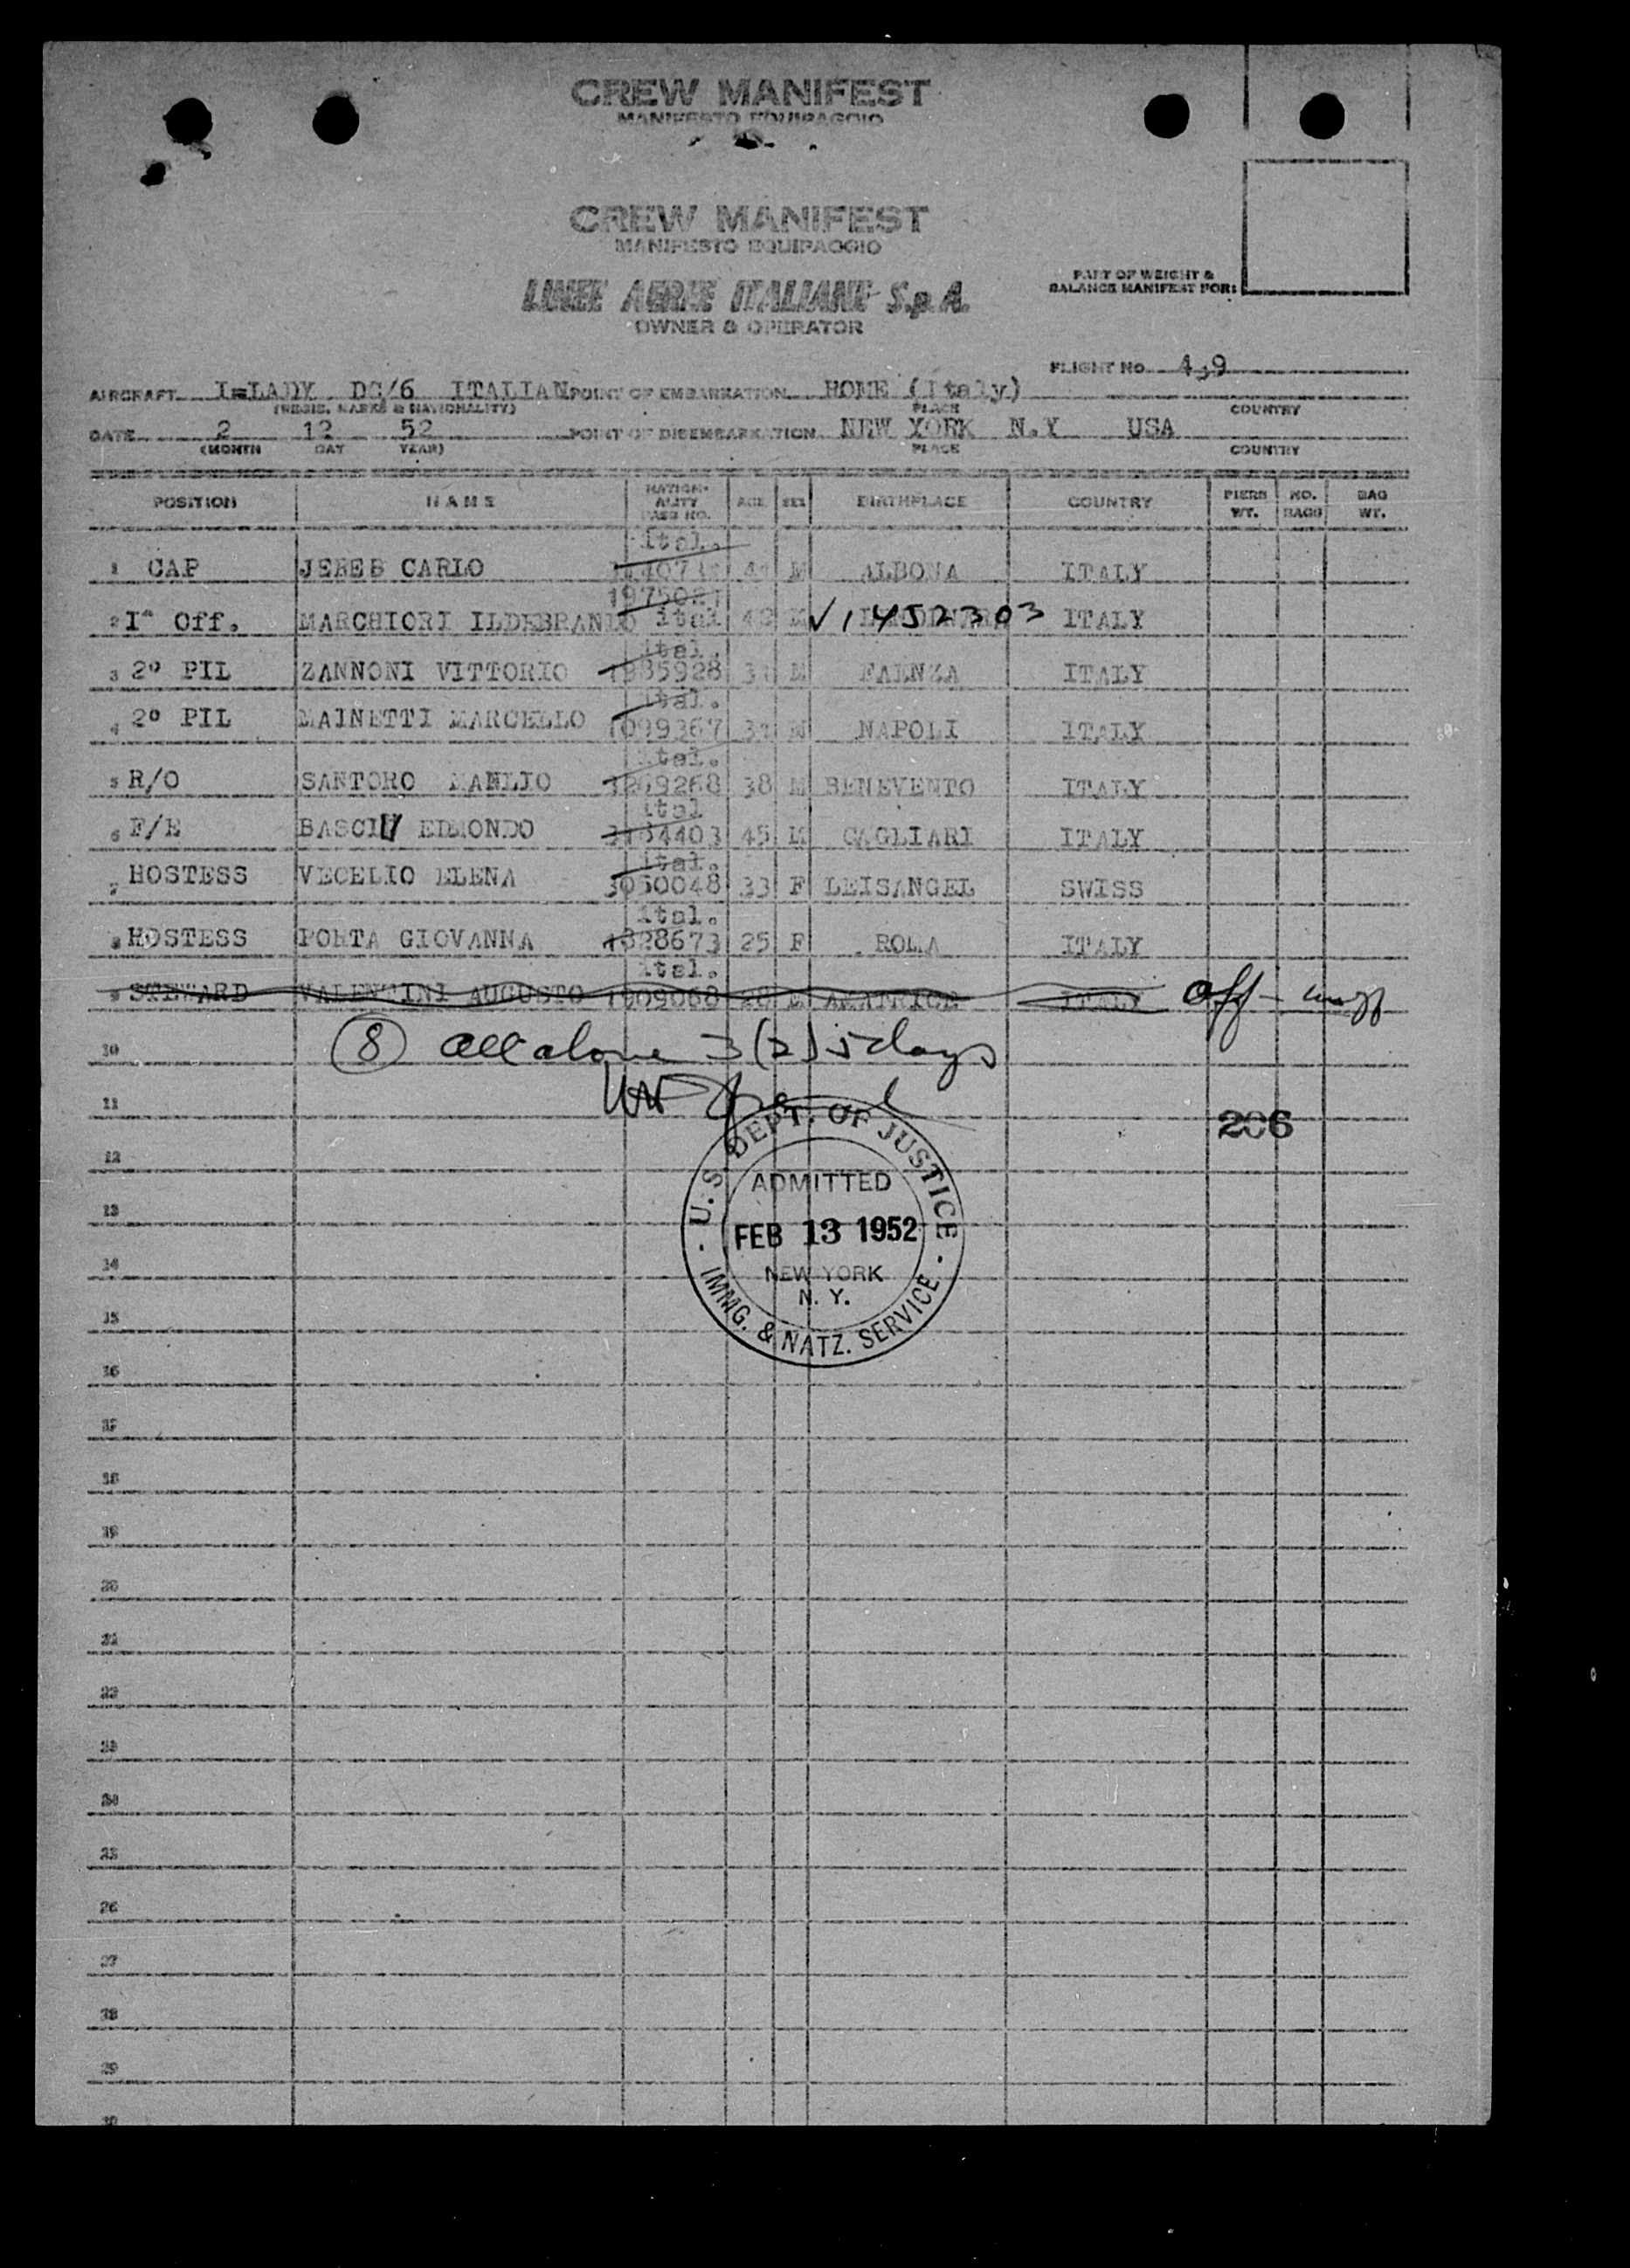 CREW MANIFEST
MANIFESTO EQUIPAGGIO
CREW MANIFEST
MANIFESTO EQUIPAGGIO
LINEE AEREE ITALIANE S.p.A.
OWNER & OPERATOR
PART OF WEIGHT &
BALANCE MANIFEST FOR:
FLIGHT NO.
AIRCRAFT I=LADY DC/6 ITALIAN POINT OF EMBARKATION ROME (Italy)
(REGIS. MARKS & NATIONALITY) PLACE COUNTRY
DATE 2 12 52 POINT OF DISEMBARKATION NEW YORK N.Y USA
(MONTH DAY YEAR) PLACE COUNTRY
POSITION NAME NATIONALITY PASS NO. AGE SEX BIRTHPLACE COUNTRY PIERS WT. NO. BAGS BAG WT.
1 CAP JEREB CARLO ital. M ALBONA ITALY
2 I° Off. MARCHIORI ILDEBRANDO 1975021 ital 42 M √ 1452303 ITALY
3 2º PIL ZANNONI VITTORIO ital. 1935928 M FAENZA ITALY
4 2º PIL MAINETTI MARCELLO ital. 1099367 M NAPOLI ITALY
5 R/O SANTORO MANLIO ital. 1209268 38 M BENEVENTO ITALY
6 F/E BASCIU EDMONDO ital 3134403 45 M CAGLIARI ITALY
7 HOSTESS VECELIO ELENA ital. 3050048 33 F LEISANGEL SWISS
8 HOSTESS PORTA GIOVANNA ital. 1828673 25 F ROMA ITALY
9 STEWARD VALENTINI AUGUSTO ital. 1909068 28 M AMATRICE ITALY Off
10 (8) all above 3(2) 5 days
11
206
12
13
14
15
16
17
18
19
20
21
22
23
24
25
26
27
28
29
30
U.S. DEPT. OF JUSTICE
ADMITTED
FEB 13 1952
NEW YORK
N. Y.
IMMG. & NATZ. SERVICE